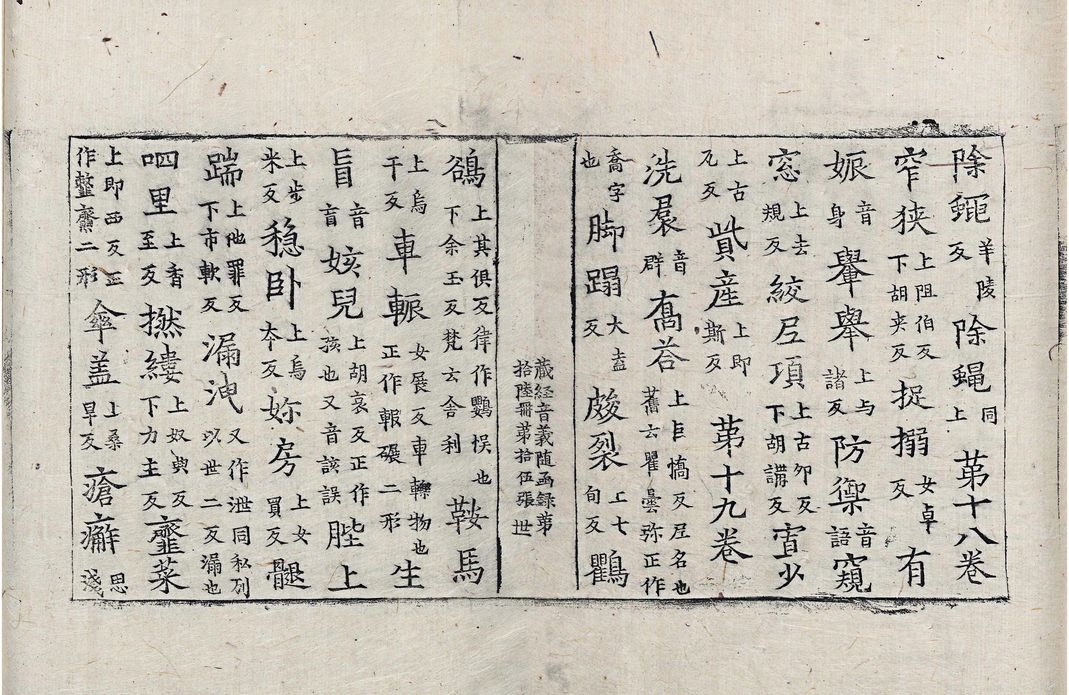 除䋲羊陵反除蝇同上第十八卷
窄狹上阻伯反下胡夾反捉搦女卓反有
娠音身轝舉上与諸反防禦音語窺
窓上去規反絞𡰱項上古卯反下胡講反𡧯少
上古瓦反貲産上即斯反第十九卷
洗羣音群髙荅上巨憍反𡰱名也舊云瞿曇弥正作
喬字也脚蹋大盍反皴裂上七旬反鸜
藏経音義随函録第
拾陸冊第拾伍張世
鵒上其俱反律作鸚悮也下余玉反梵云舍利鞍馬
上烏干反車輾女展反車轢物也正作報碾二形生
盲音盲姟兒上胡哀反正作孩也又音該誤䏶上
上步米反稳卧上烏夲反妳房上女買反髋
踹上他罪反下市軟反漏洩又作泄同私列反以世二反漏也
呬里上香至反撚縷上奴典反下力主反虀菜
上即西反正作䪢齏二形傘盖上桑旱反瘡癬思淺